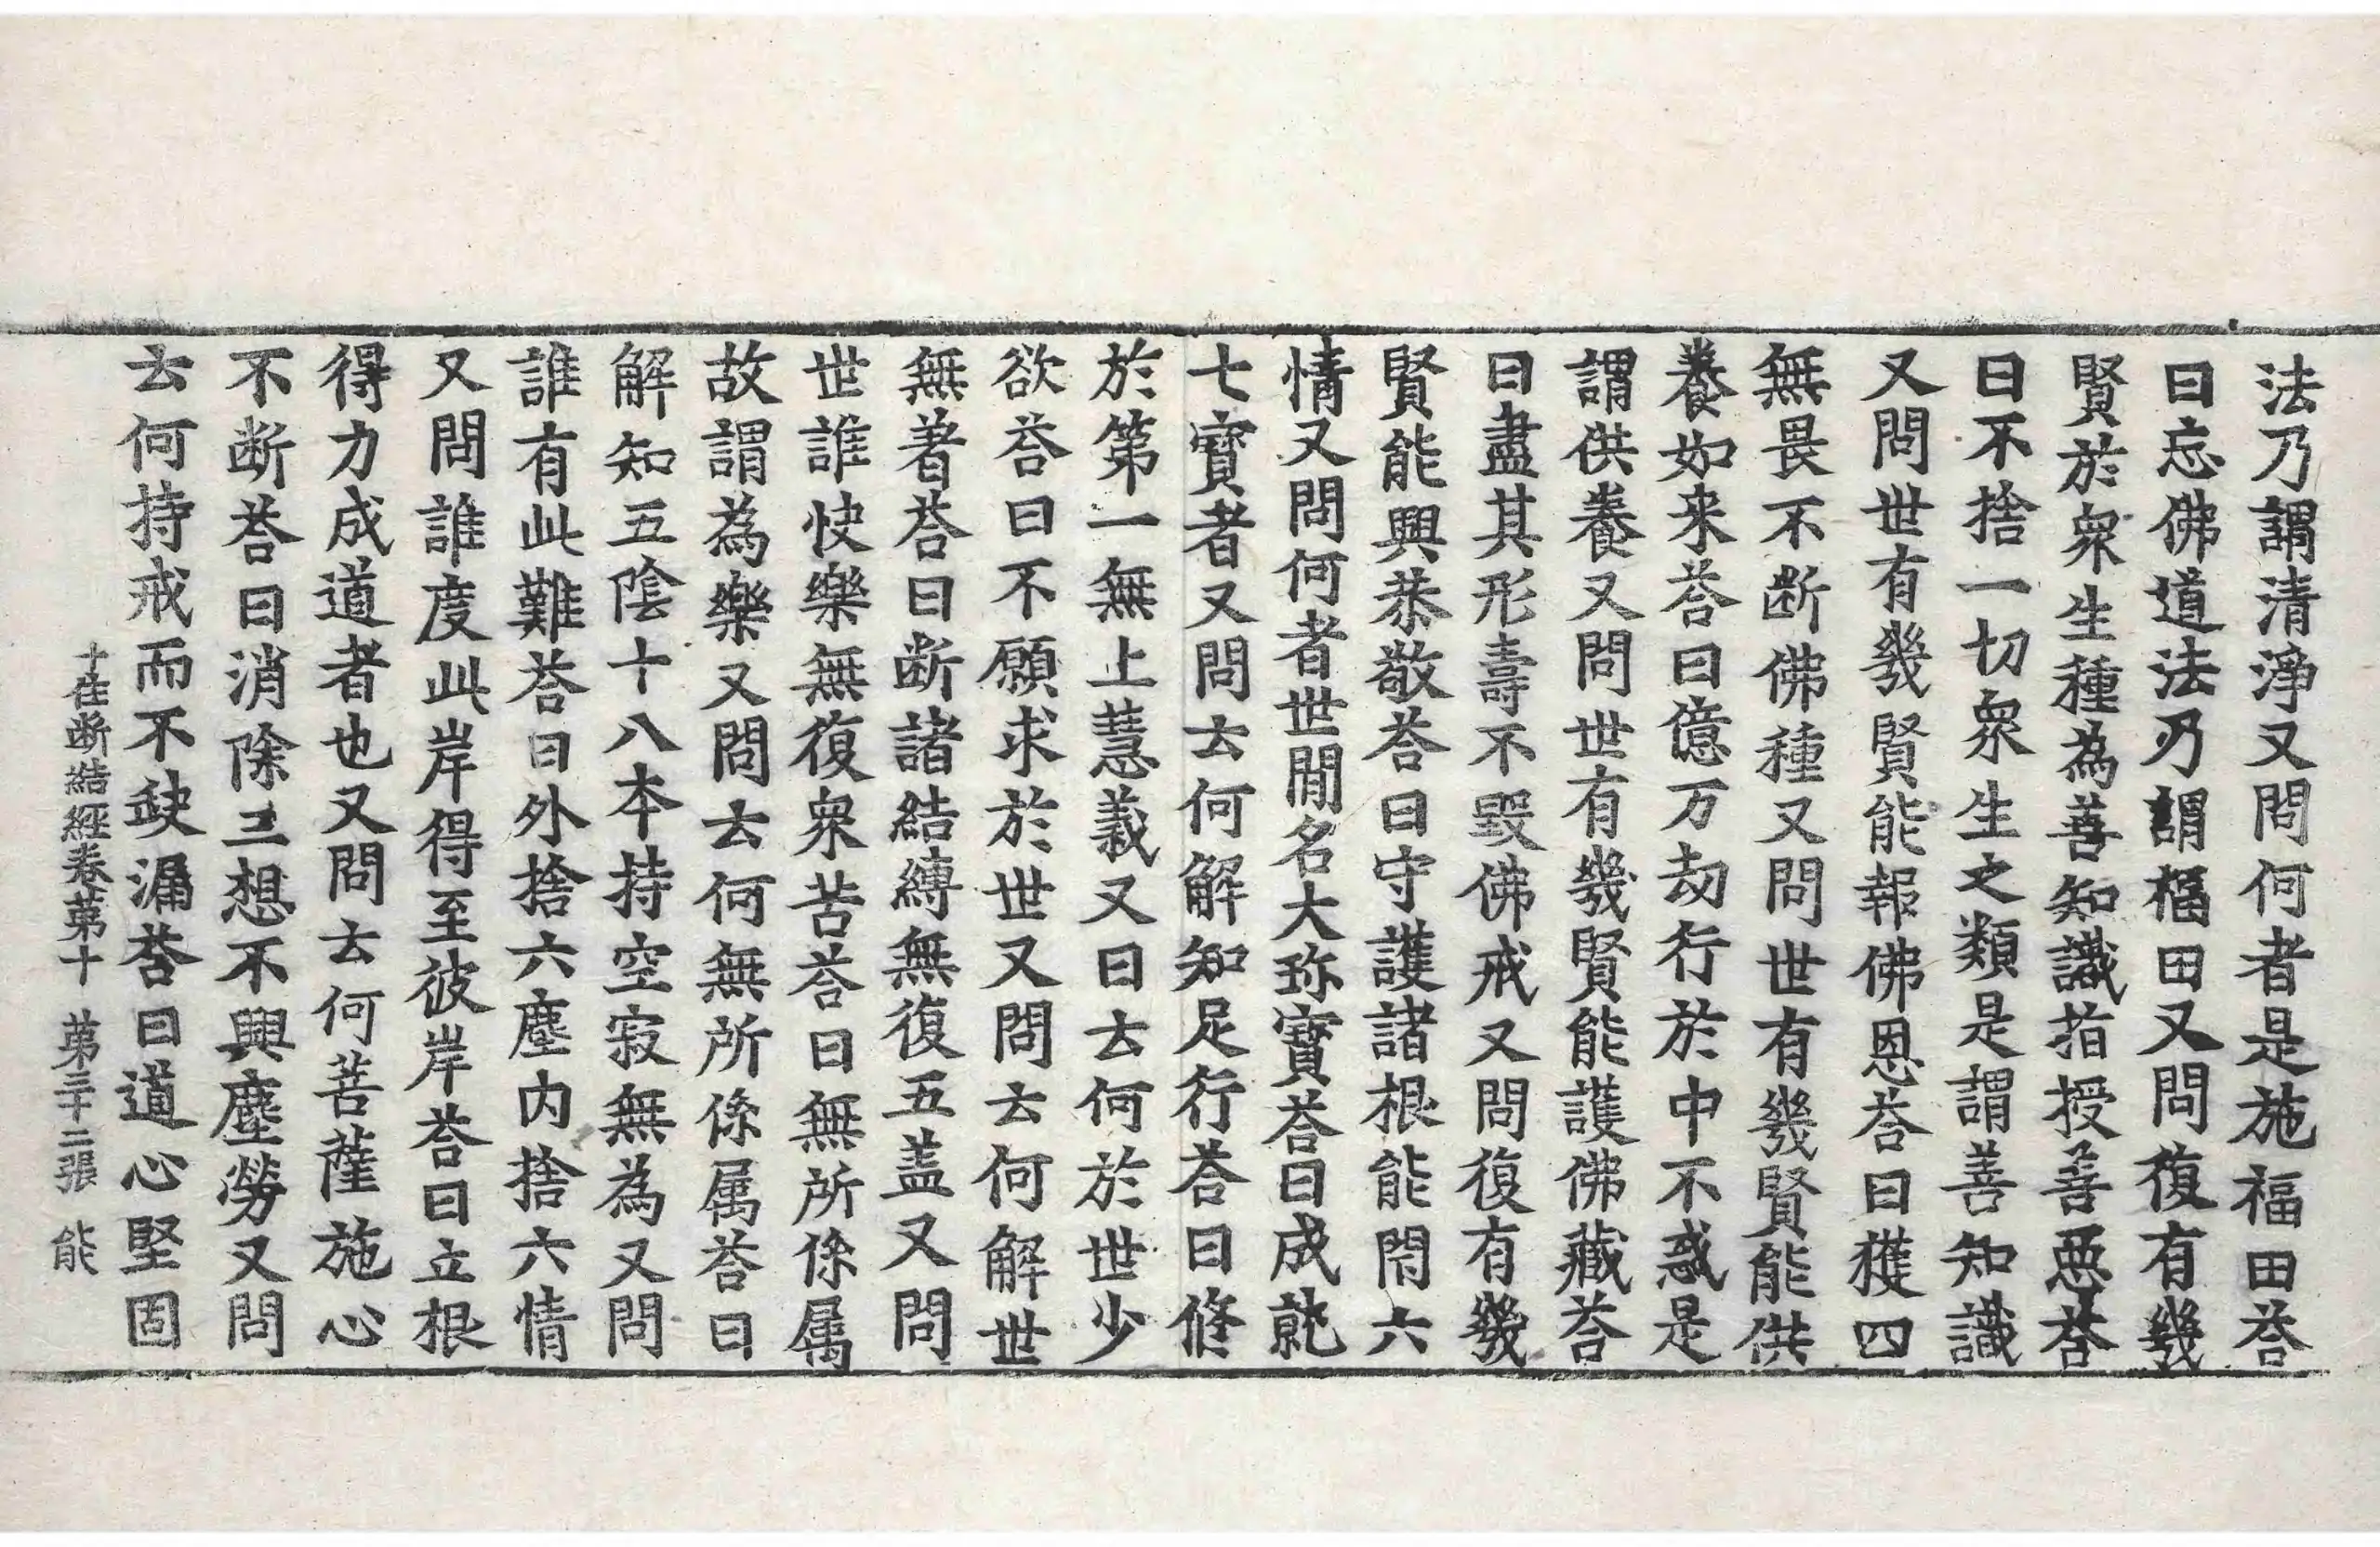 法乃謂清淨又問何者是施福田荅
曰忘佛道法乃謂福田又問復有幾
賢於衆生種為善知識指授善惡荅
曰不捨一切衆生之類是謂善知識
又問世有幾賢能報佛恩荅曰獲四
無畏不断佛種又問世有幾賢能供
養如来荅曰億万劫行於中不惑是
謂供養又問世有幾賢能護佛藏荅
曰盡其形壽不毀佛戒又問復有幾
賢能興恭敬荅曰守護諸根能閇六
情又問何者世間名大珎寶荅曰成就
七寶者又問云何解知足行荅曰修
於第一無上慧義又曰云何於世少
欲荅曰不願求於世又問云何解世
無著荅曰断諸結縛無復五盖又問
世誰快樂無復衆苦荅曰無所係属
故謂為樂又問云何無所係属荅曰
解知五陰十八本持空寂無為又問
誰有此難荅曰外捨六塵内捨六情
又問誰度此岸得至彼岸荅曰立根
得力成道者也又問云何菩薩施心
不断荅曰消除三想不興塵勞又問
云何持戒而不缺漏荅曰道心堅固
十住断結經卷第十 第三十二張 能